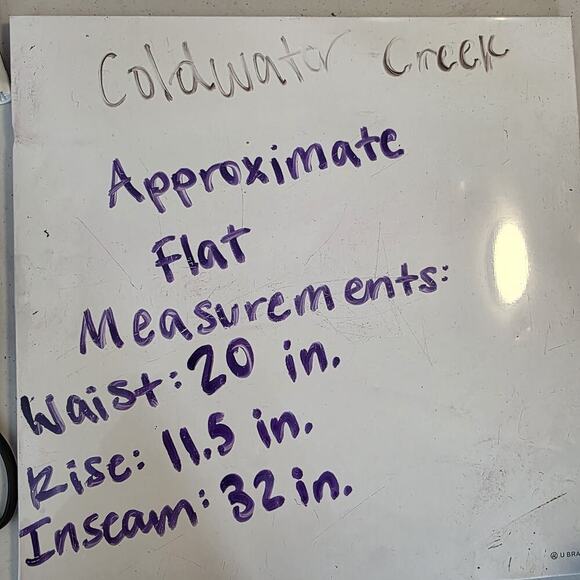 Coldwater Creek
Approximate
Flat
Measurements:
Waist: 20 in.
Rise: 11.5 in.
Inseam: 32 in.
U BRA